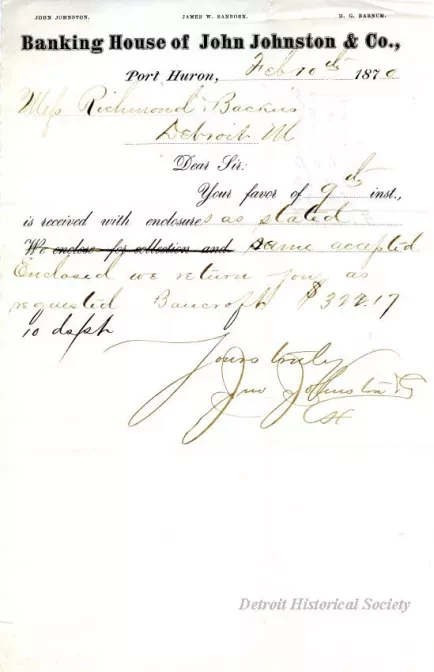 JOHN JOHNSTON. JAMES W. SANBORN. H. G. BARNUM.
Banking House of John Johnston & Co.,
Port Huron, Feb 10th 1870
Mess Richmond & Backus
Detroit M
Dear Sir:
Your favor of 9th inst.,
is received with enclosures as stated
We enclose for collection and same accepted
Enclosed we return you as
requested Bancroft $322.17
10 ds
Yours truly
Jno Johnston &
Detroit Historical Society